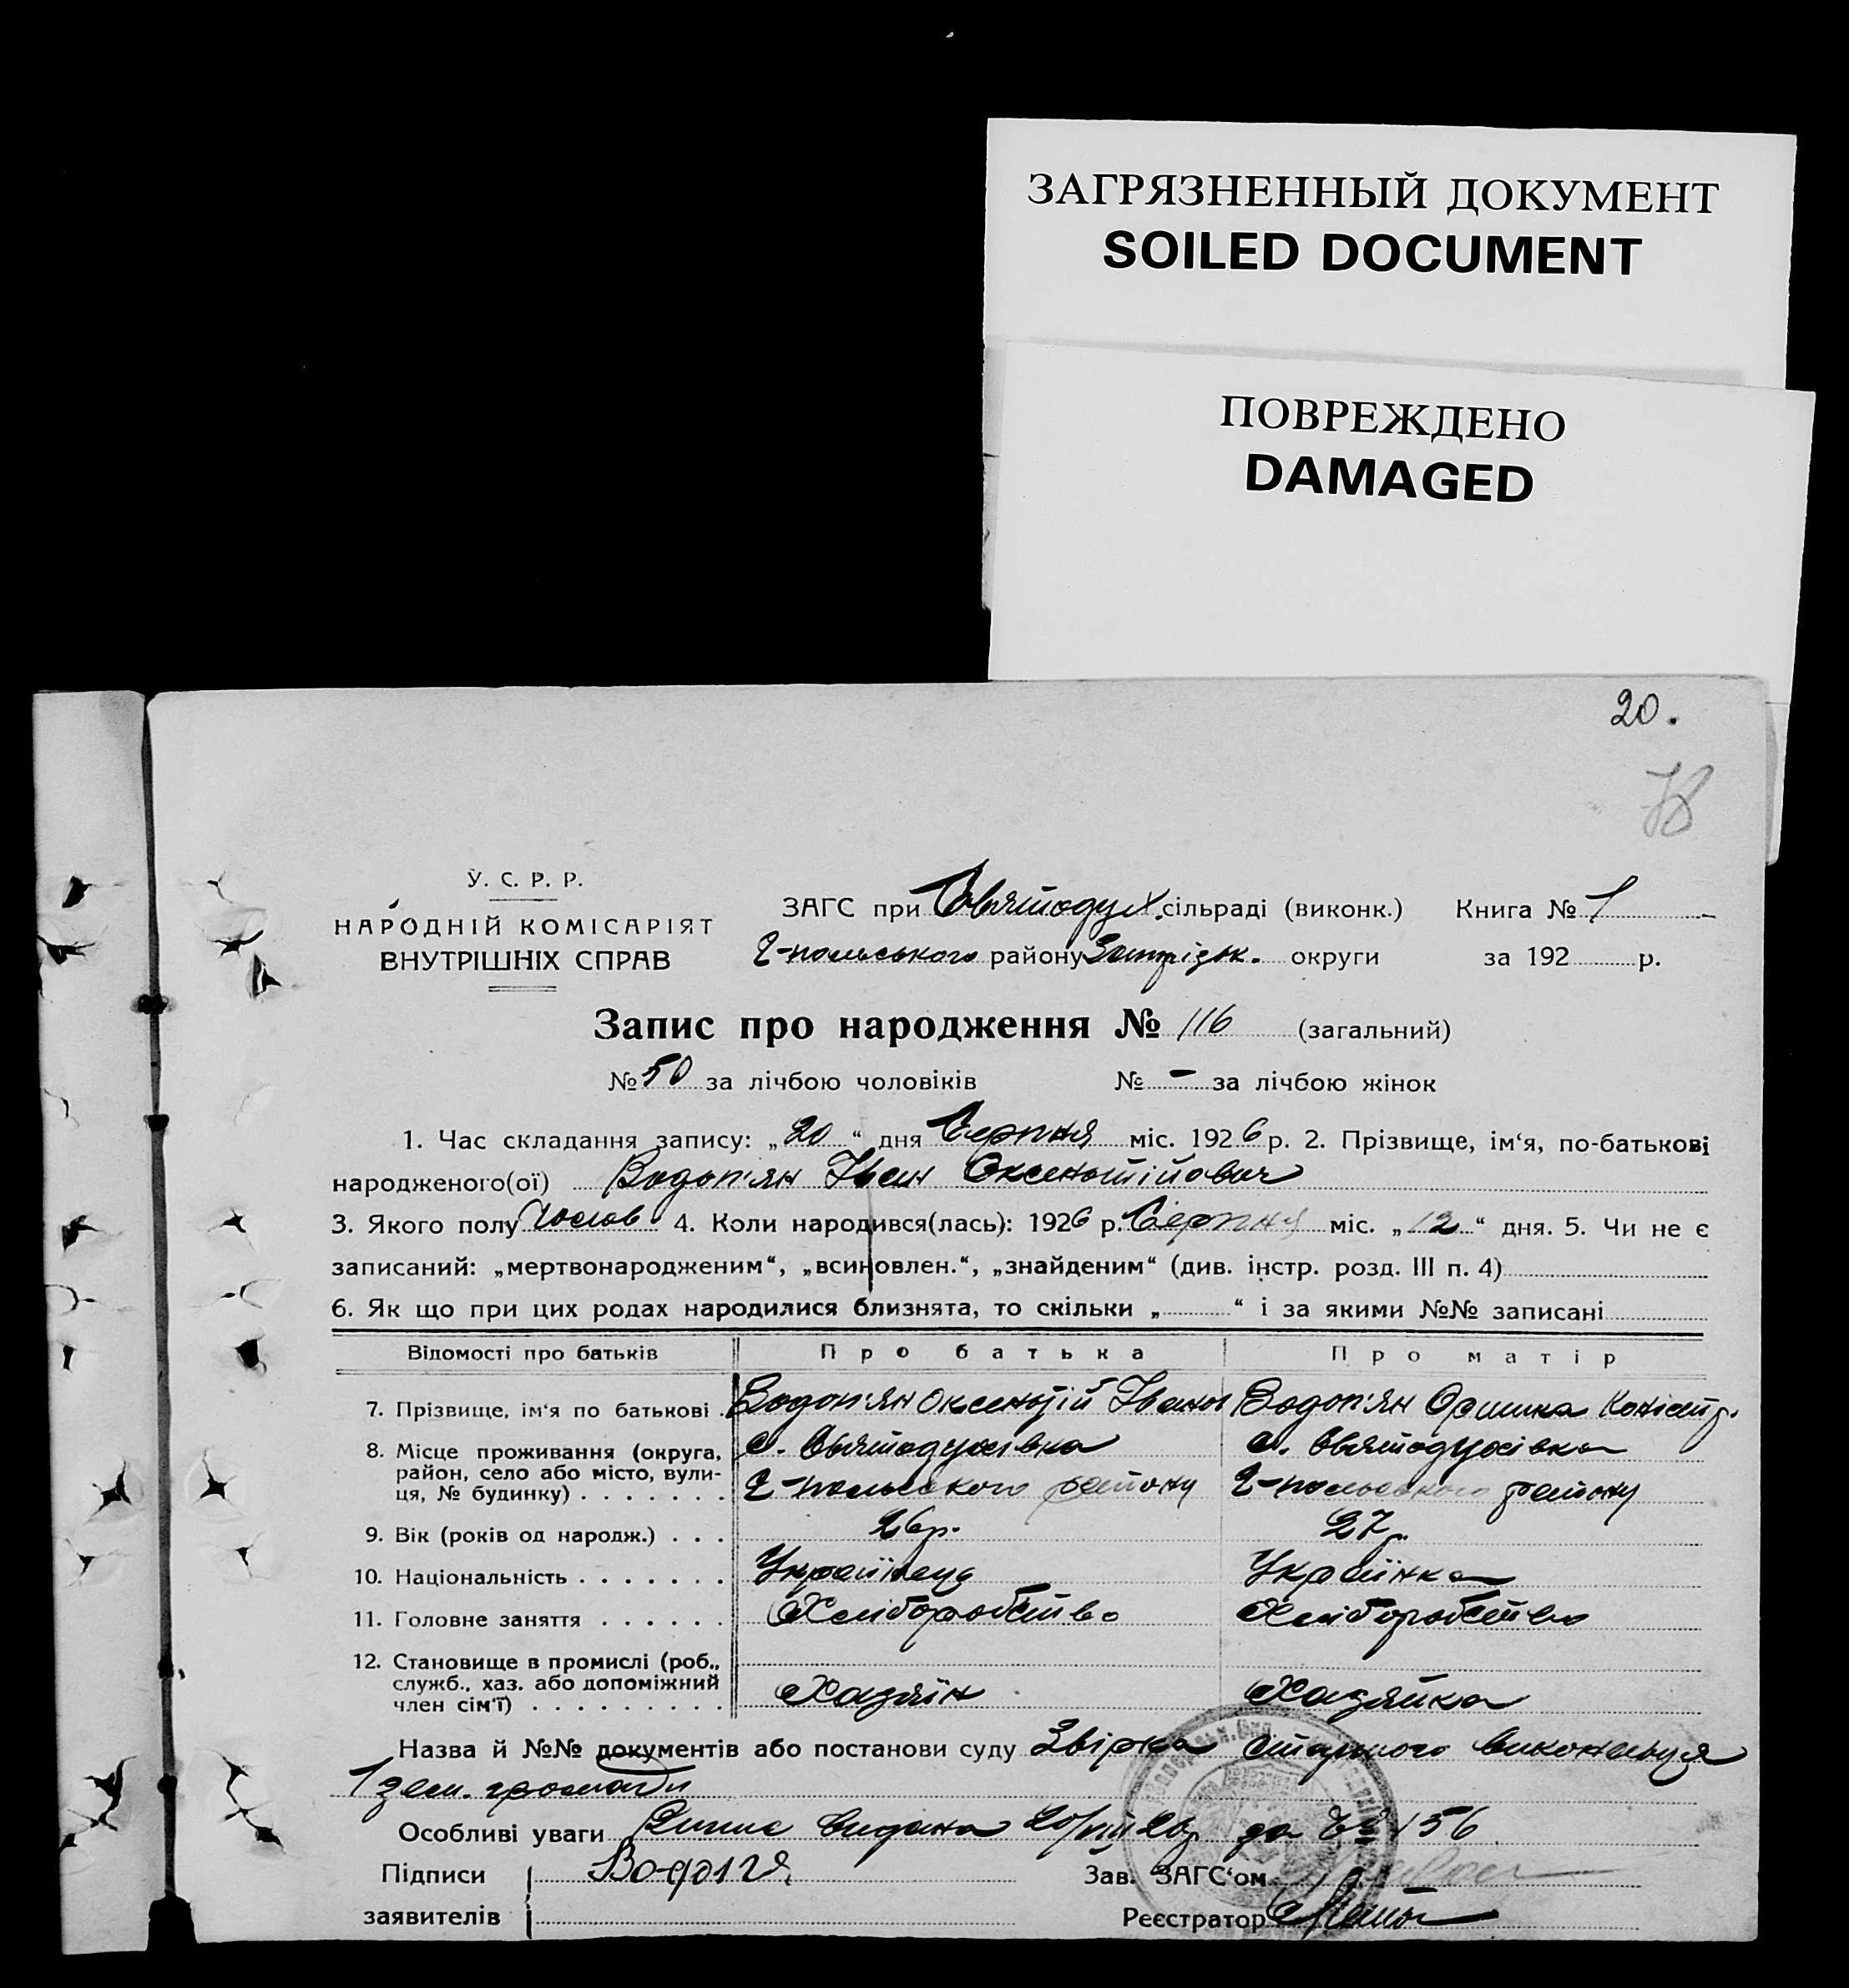 ЗАГРЯЗНЕННЫЙ ДОКУМЕНТ
SOILED DOCUMENT
ПОВРЕЖДЕНО
DAMAGED
20.
78
У. С. Р. Р.
НАРОДНІЙ КОМІСАРІЯТ
ВНУТРІШНІХ СПРАВ
ЗАГС при Святодух. сільраді (виконк.) Книга № 1
г-польського району Запоріzьк. округи за 192 р.
Запис про народження № 116 (загальний)
№ 50 за лічбою чоловіків № - за лічбою жінок
1. Час складання запису: „20“ дня Серпня міс. 1926 р. 2. Прізвище, ім‘я, по-батькові
народженого(ої) Водоп'ян Іван Оксентійович
3. Якого полу Чолов. 4. Коли народився(лась): 1926 р. Серпня міс. „12“ дня. 5. Чи не є
записаний: „мертвонародженим“, „всиновлен.“, „знайденим“ (див. інстр. розд. III п. 4)
6. Як що при цих родах народилися близнята, то скільки „ “ і за якими №№ записані
Відомості про батьків Про батька Про матір
7. Прізвище, ім‘я по батькові Водоп'ян Оксентій Іванов Водоп'ян Оришка
8. Місце проживання (округа, с. Святодухівка с. Святодухівка
район, село або місто, вули-
ця, № будинку) . . . . . . . г-польського району г-польського району
9. Вік (років од народж.) . . . 26 р. 27 р.
10. Національність . . . . . . . Українець Українка
11. Головне заняття . . . . . . Хліборобство Хліборобство
12. Становище в промислі (роб.,
служб., хаз. або допоміжний
член сім‘ї) . . . . . . . . . Хазяїн Хазяйка
Назва й №№ документів або постанови суду Звірка старшого виконавця
1 зем. громади
Особливі уваги Випис видана 20/VIII 26 р. за № 156
Підписи Зав. ЗАГС‘ом
заявителів Реєстратор